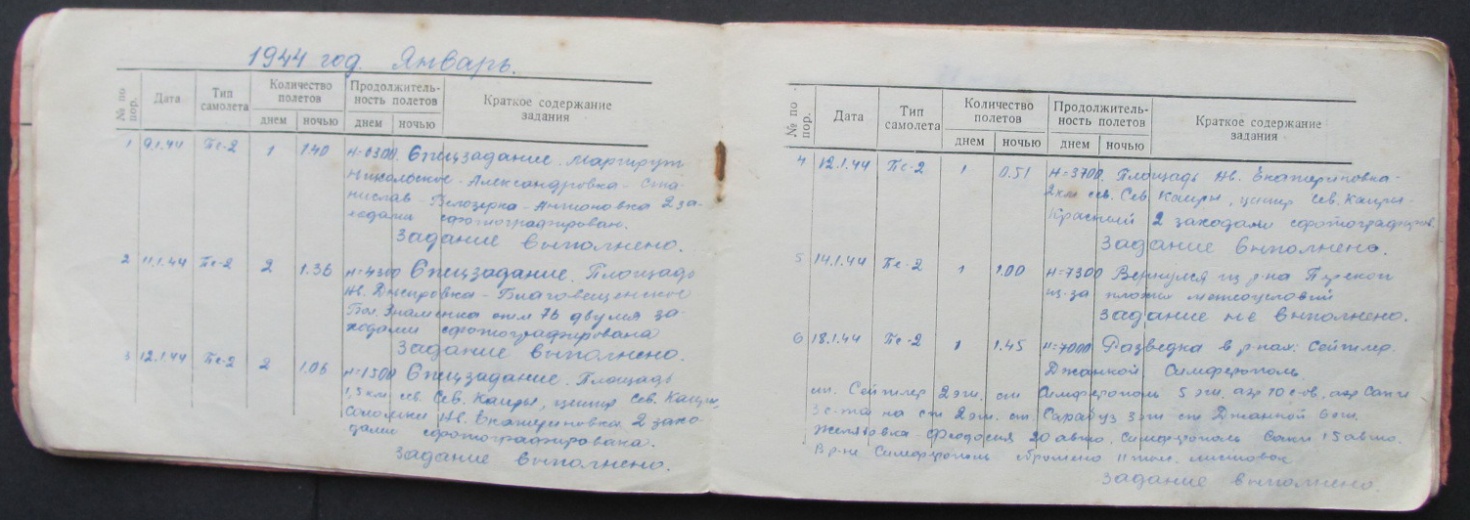 1944 год. Январь.
№ по пор. Дата Тип самолета Количество полетов Продолжитель-ность полетов Краткое содержание задания
днем ночью днем ночью
1 9.1.44 Пе-2 1 1.40 Н=6300. Спецзадание. Маршрут
Николаское - Александровка - Ста-
нислав - Белозерка - Антоновка 2 за-
ходами сфотографирован.
Задание выполнено.
2 11.1.44 Пе-2 2 1.36 Н=4300 Спецзадание. Площадь
Нв. Днепровка - Благовещенское
Бол. Знаменка отм 76 двумя за-
ходами сфотографирована
Задание выполнено.
3 12.1.44 Пе-2 2 1.06 Н=1500 Спецзадание. Площадь
1,5 км сев. Сев. Каиры, центр Сев. Каиры,
Нв. Екатериновка 2 захо-
дами сфотографирована.
Задание выполнено.
№ по пор. Дата Тип самолета Количество полетов Продолжитель-ность полетов Краткое содержание задания
днем ночью днем ночью
4 12.1.44 Пе-2 1 0.51 Н=3700. Площадь Нв. Екатериновка -
2 км сев. Сев. Каиры, центр Сев. Каиры -
Красный 2 заходами сфотографиров.
Задание выполнено.
5 14.1.44 Пе-2 1 1.00 Н=7300 Вернулся из р-на
из-за плохих метеоусловий
Задание не выполнено.
6 18.1.44 Пе-2 1 1.45 Н=7000 Разведка в р-нах: Сейтлер.
Джанкой Симферополь.
ст. Сейтлер 2 эш. ст Симферополь 5 эш. аэр 70 с-в, аэр Саки
3 с-та на ст 2 эш. ст Сарабуз 3 эш ст Джанкой 6 эш.
Желябовка - Феодосия 20 авто, Симферополь Саки 15 авто.
В р-не Симферополь сброшено 11 тыс. листовок
Задание выполнено.